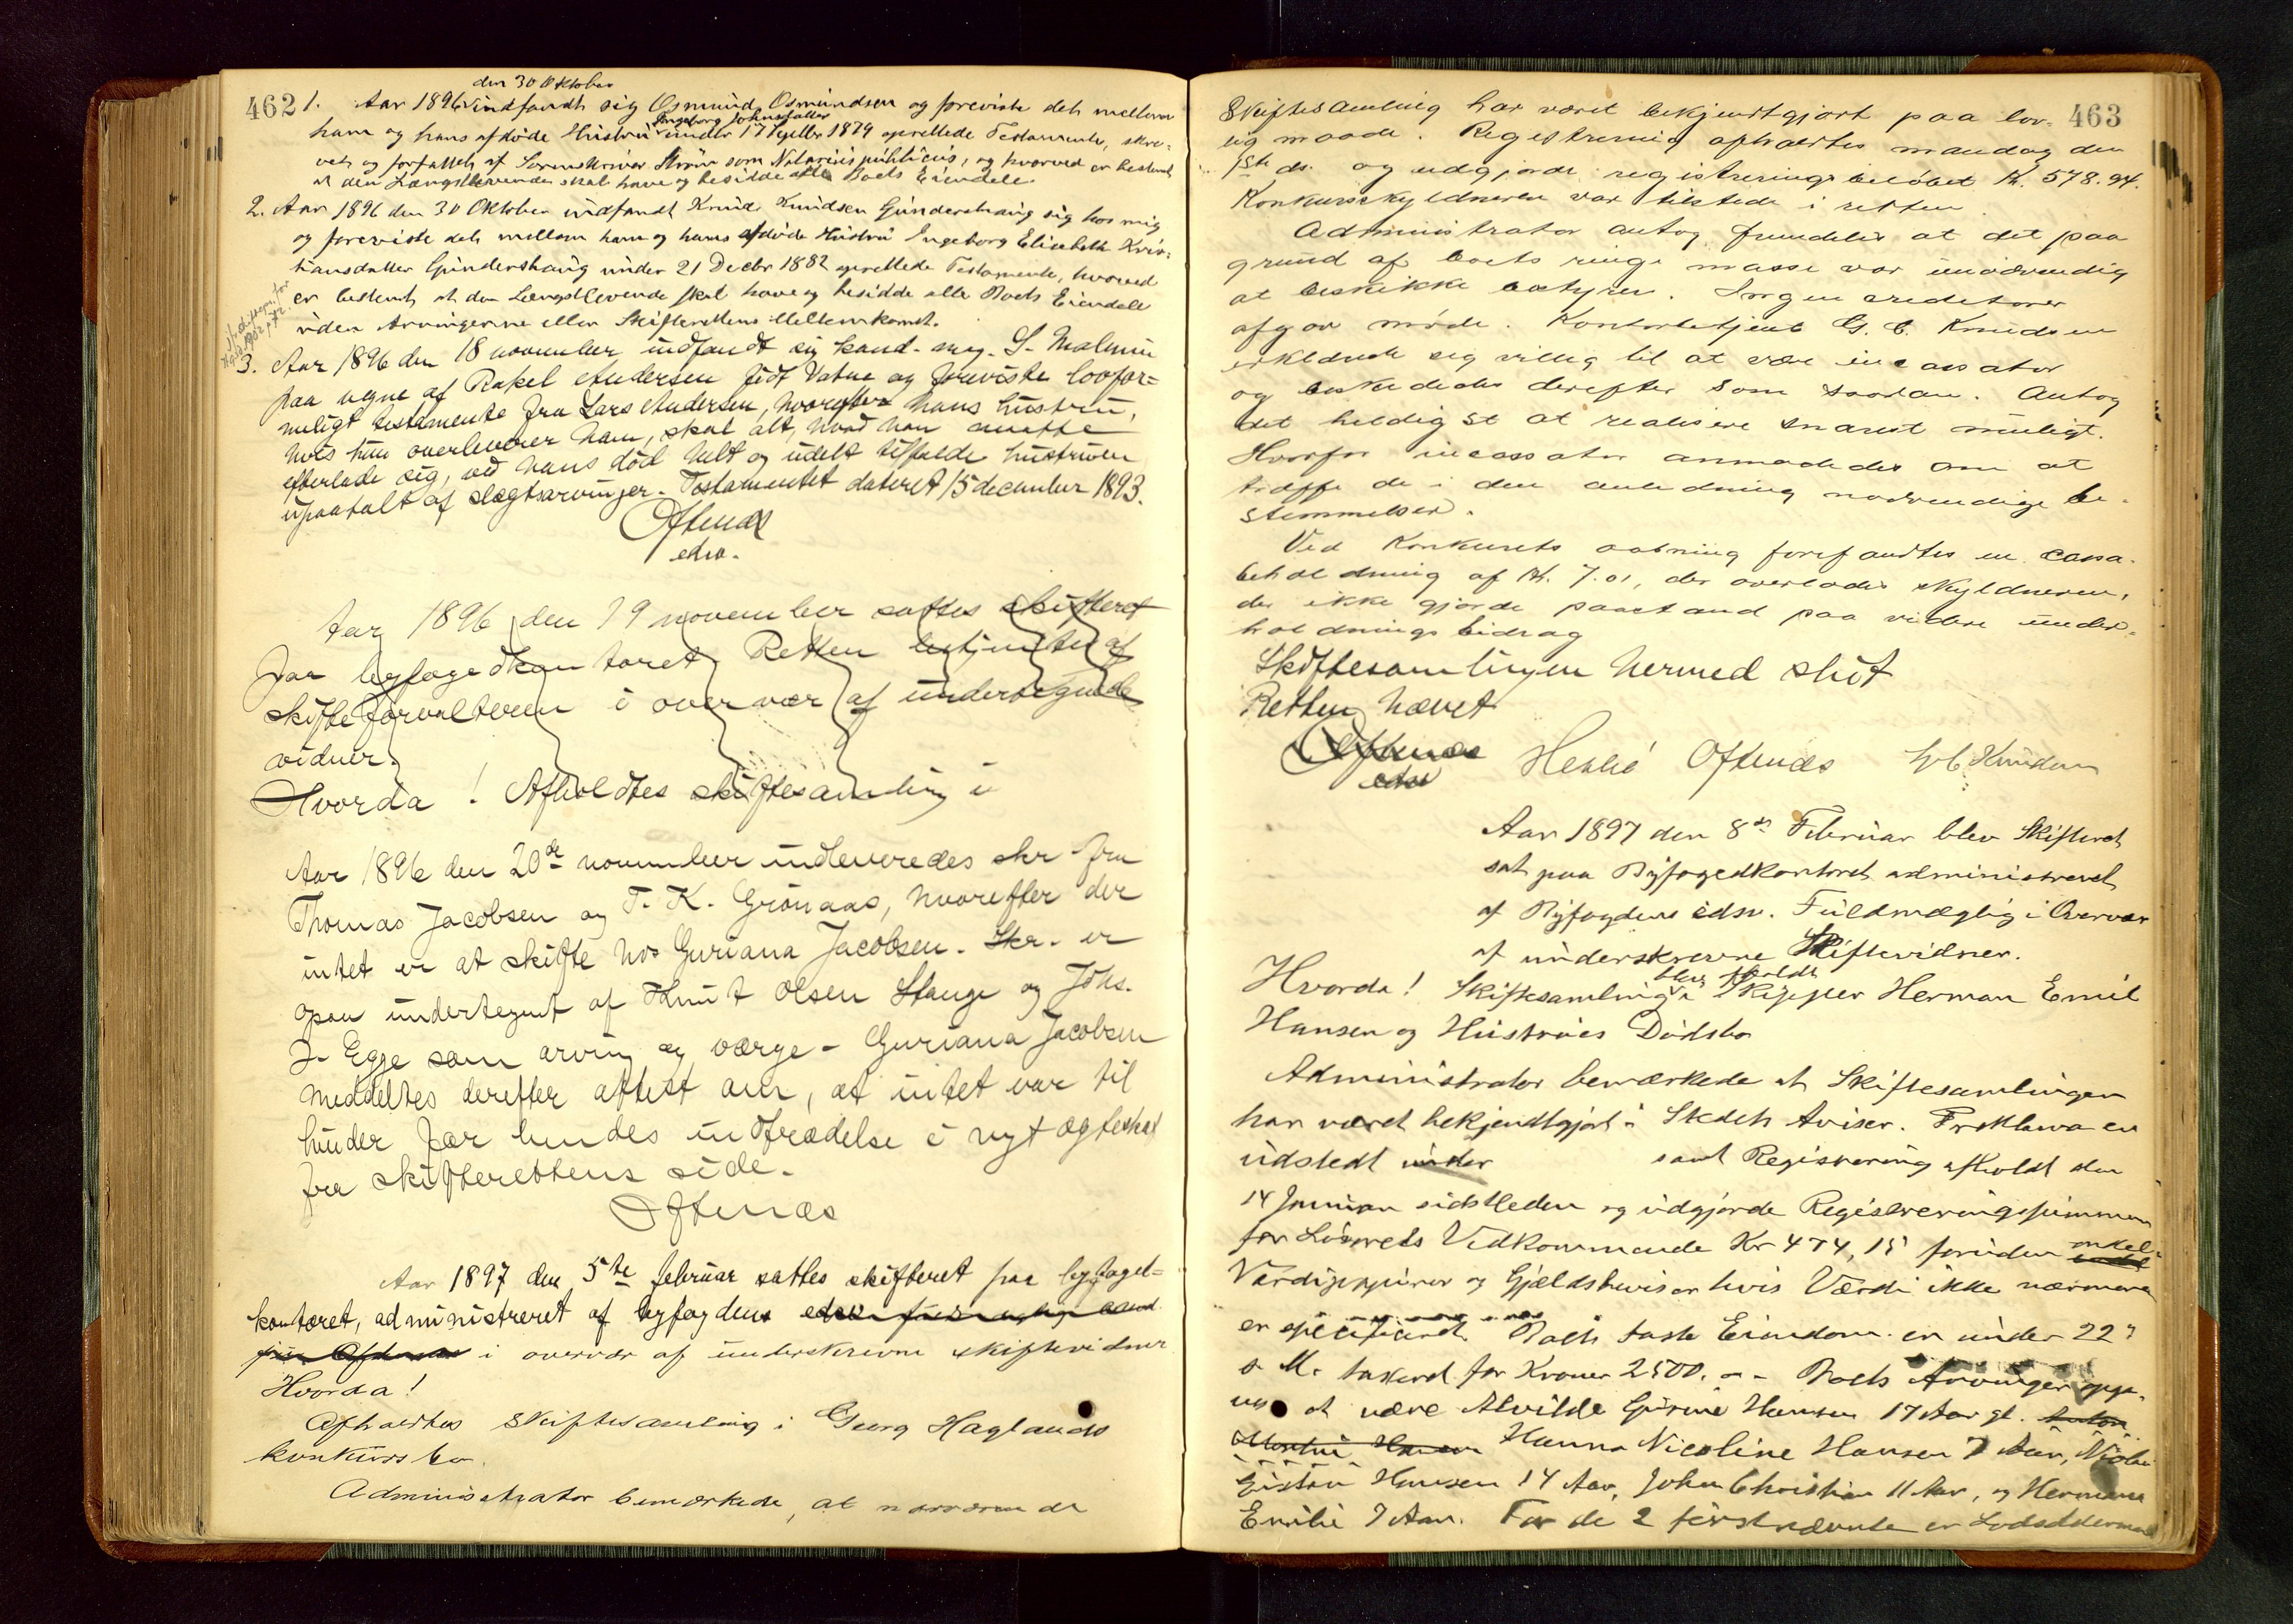 462
den 30 Oktober
1. Aar 1896 indfandt sig Osmund Osmundsen og foreviste det mellem
Ingeborg Johnsdatter
ham og hans afdöde Hustru under 17 Septbr 1879 oprettede Testamente, skre-
vet og forfattet af Sorenskriver Ström som Notarius publicus, og hvorved er bestemt
at den Længstlevende skal have og besidde alle Boets Eiendele.
2. Aar 1896 den 30 Oktober indfandt Knud Knudsen Gunderstraug sig hos mig
og foreviste det mellem ham og hans afdöde Hustru Ingeborg Elisabeth Kris-
tiansdatter Gundershaug under 21 Decbr 1882 oprettede Testamente, hvorved
er bestemt, at den Længstlevende skal have og besidde alle Boets Eiendele
uden Arvingerne eller Skifterettens Mellemkomst.
3. Aar 1896 den 18 november indfandt sig kand. mag. S. Malmin
paa vegne af Rakel Andersen födt Vatne og foreviste lovfor=
meligt testamente fra Lars Andersen, hvorefter hans hustru,
hvis hun overlever ham, skal alt, hvad han maatte
efterlade sig, ved hans död helt og udelt tilfalde hustruen
upaatalt af slægtsarvinger. Testamentet dateret 15 december 1893.
Oftenæs
edsv.
Aar 1896 den 19 november sattes skifteret
paa byfogedkontoret. Retten betjentes af
skifteforvalteren i overvær af undertegnede
vidner.
Hvorda! Afholdtes skiftesamling i
Aar 1896 den 20de november indleveredes skr fra
Thomas Jacobsen og T. K. Grönaas, hvorefter der
intet er at skifte hos Guriana Jacobsen. Skr. er
ogsaa undertegnet af Knut Olsen Stange og Johs.
J. Egge som arving og værge. Guriana Jacobsen
meddeltes derefter attest om, at intet var til
hinder for hendes indtrædelse i nyt ægteskab
fra skifterettens side.
Oftenæs
Aar 1897 den 5te februar sattes skifteret paa byfoged=
kontoret, administreret af byfogdens edsv.
i overvær af underskrevne skiftevidner
Hvorda!
Afholdtes skiftesamling i Georg Haglands
konkursbo.
Administrator bemærkede, at nærværende
463
Skiftesamling har været bekjendtgjort paa lov-
lig maade. Registrering afholdtes mandag den
1ste ds. og udgjorde registreringsbeløbet Kr. 578.94.
Konkursskyldneren var tilstede i retten.
Administrator antog fremdeles at det paa
grund af boets ringe masse var unødvendig
at beskikke bostyrer. Ingen creditorer
afgav møde. Kontorbetjent G. C. Knudsen
erklærede sig villig til at være incassator
og beskikkedes derefter som saadan. Antog
det heldigst at realisere snarest muligt.
Hvorfor incassator anmodedes om at
træffe de i den anledning nødvendige be-
stemmelser.
Ved Konkursets aabning forefandtes en cassa-
beholdning af Kr. 7.01, der overlodes skyldneren,
der ikke gjorde paastand paa videre under-
holdningsbidrag
Skiftesamlingen hermed slut
Retten hævet
Oftenæs
edsv
Oftenæs G. C. Knudsen
Aar 1897 den 8de Februar blev Skifteret
sat paa Byfogedkontoret administreret
af Byfogdens edsv. Fuldmægtig i Overvær
af underskrevne Skiftevidner.
blev afholdt
Hvorda! Skiftesamling i Skipper Herman Emil
Hansen og Hustrues Dödsbo
Administrator bemærkede at Skiftesamlingen
har været bekjendtgjort i Stedets Aviser. Proklama er
udstedt under samt Registrering afholdt den
14 Januar sidstleden og udgjorde Registreringssummen
for Lösörets Vedkommende Kr 474,15 foruden enkel-
Værdipapirer og Gjældsbeviser hvis Værdi ikke nærmere
er specificeret. Boets faste Eiendom er under 22
d. M. takseret for Kroner 2500.-- Boets Arvinger opgi-
ves at være Alvilde Gurine Hansen 17 Aar gl. Anton
Hansen Hanna Nicoline Hansen 7 Aar,
Hansen 14 Aar, John Christian 11 Aar, og Hermann
Emilie 7 Aar. For de 2 förstnævnte er